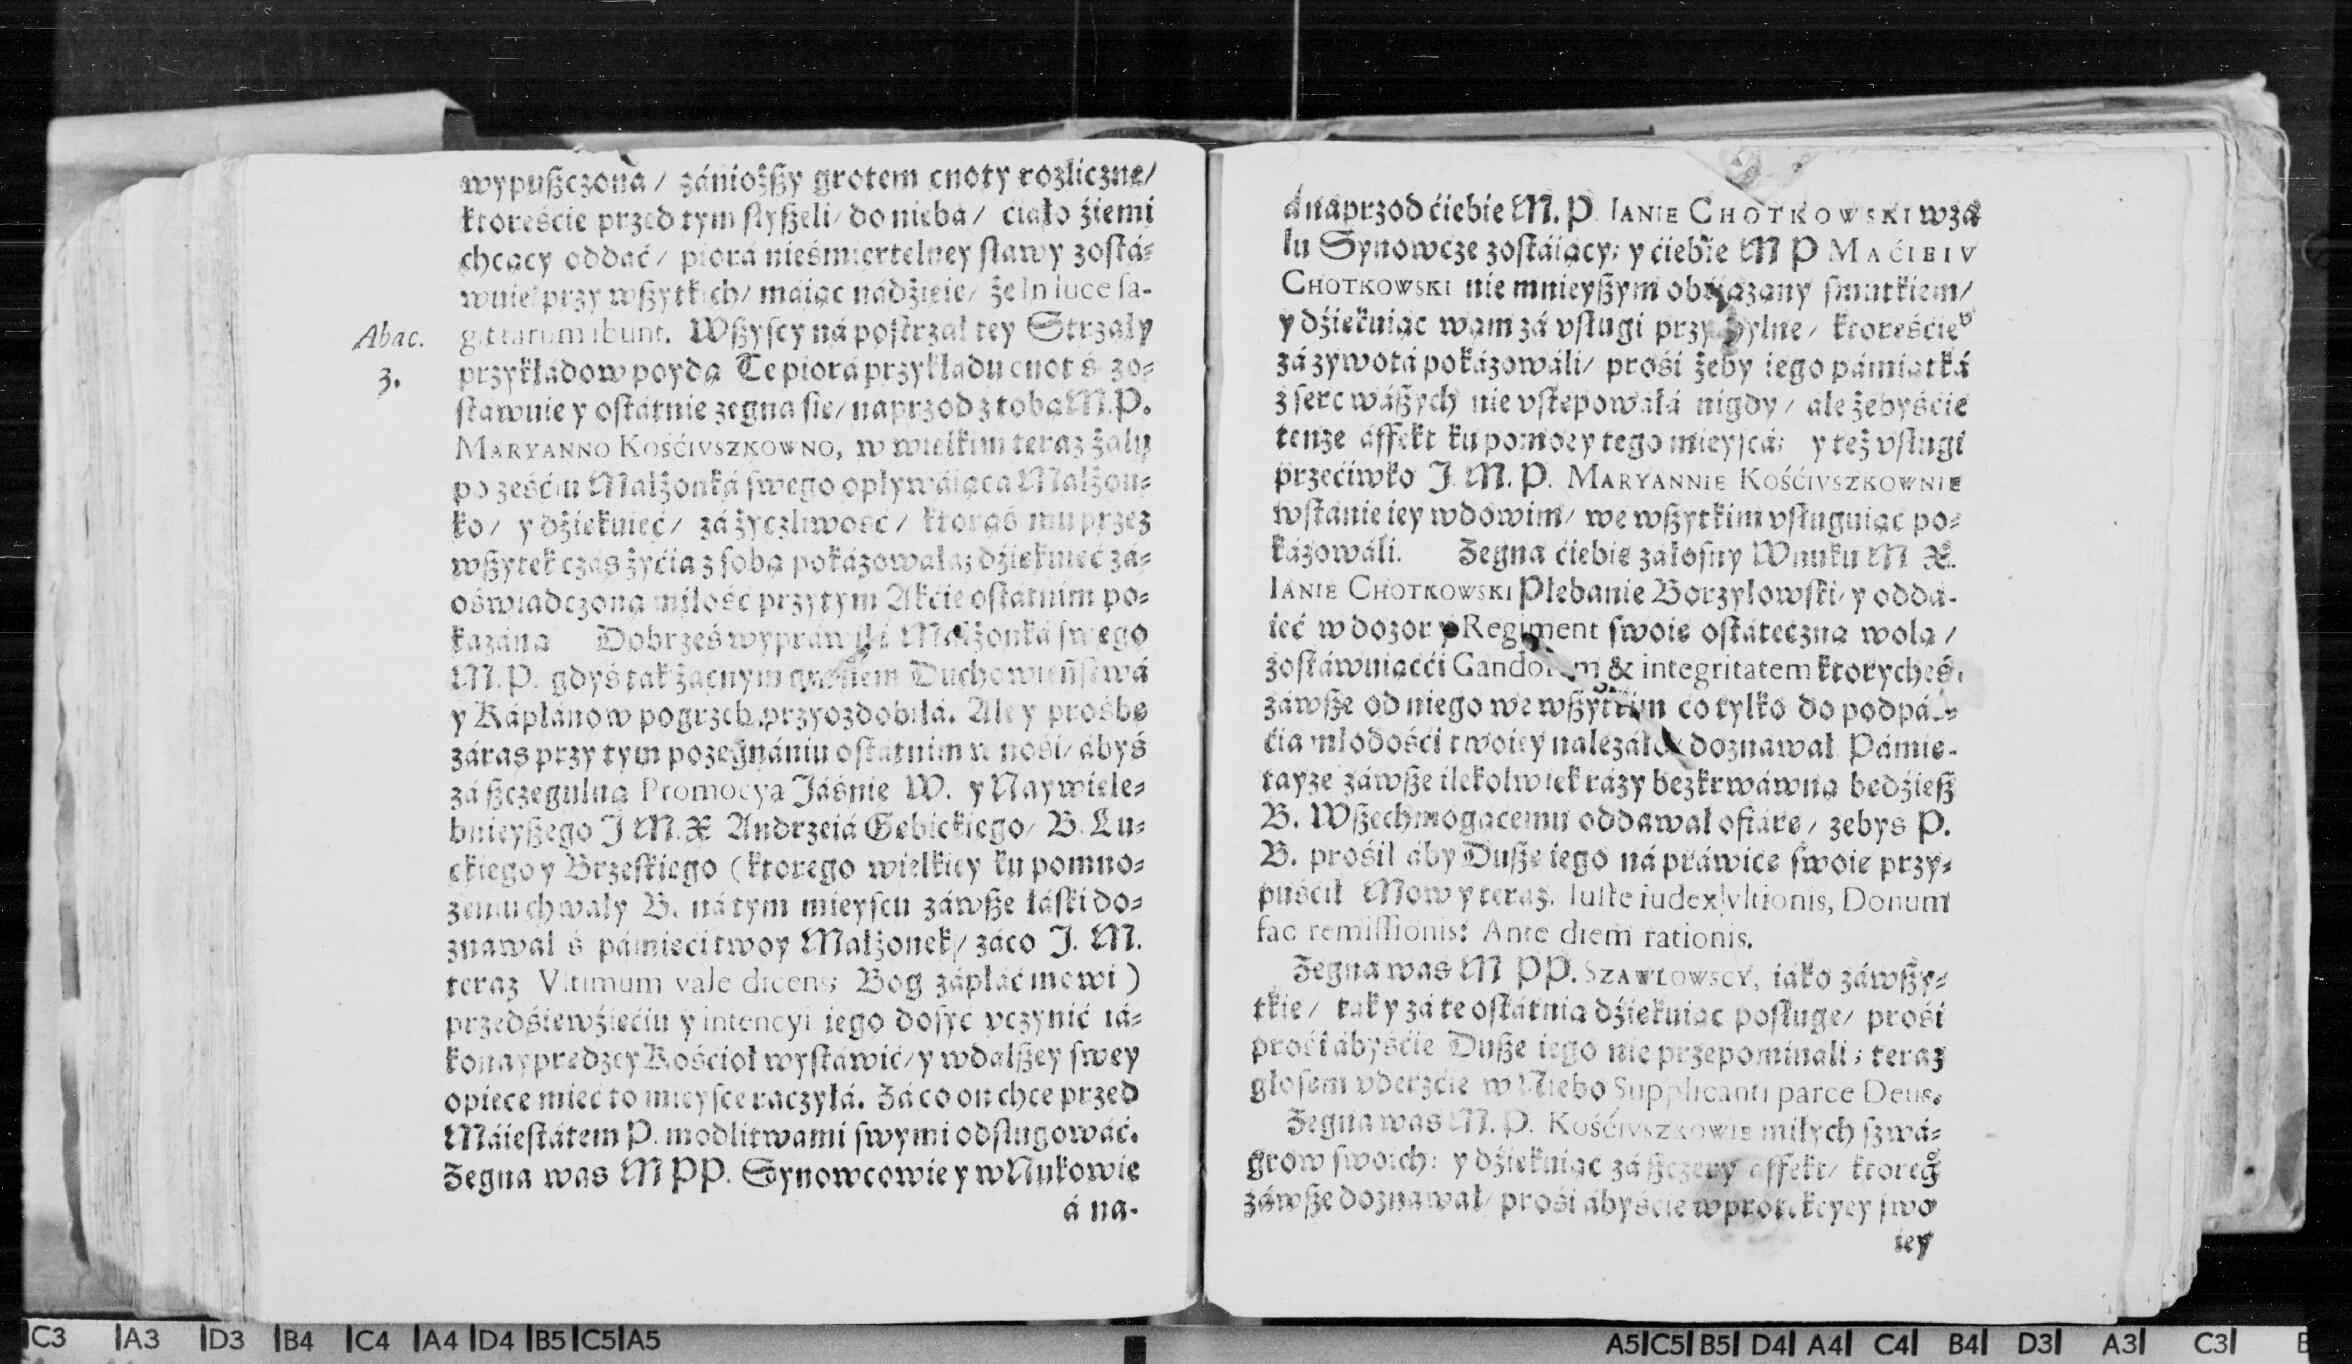 wypußczona / zániozßy grotem cnoty rozliczne/
ktoreście przed tym słyßeli/ do nieba/ ciało źiemi
chcący oddać / piora nieśmiertelney sławy zostá-
wuie przy wßytkich/ maiąc nádźieie/ że In luce sa-
gittarum ibunt. Wßyscy ná postrzał tey Strzały
Abac.
3.
przykładow poydą Te piora przykładu cnot ś. zo-
stawuie y ostátnie zegna sie/ naprzod z tobą M.P.
MARYANNO KOŚĆIVSZKOWNO, w wielkim teraz żalu
po ześćiu Małżonká swego opływáiąca Małżon-
ko/ y dźiekuieć/ zá życzliwość/ ktorąś mu przez
wßytek czás żyćia z sobą pokázowałá; dźiekuieć zá-
oświadczoną miłość przy tym Akćie ostátnim po-
kazáną Dobrześ wypráwiłá Małżonká swego
M. P. gdyś tak zacnym Duchowieństwá
y Kápłánow pogrzeb przyozdobiłá. Ale y prośbe
záras przy tym pozegnániu ostátnim w nośi/ ábyś
zá ßczegulną Promocyą Jáśnie W. y Naywiele-
bnieyßego J M. X Andrzeiá Gebickiego/ B. Lu-
ckiego y Brzeskiego (ktorego wielkiey ku pomno-
żeniu chwały B. ná tym mieyscu záwße łáski do-
znawał ś pámieći twoy Małżonek/ záco J. M.
teraz Vltimum vale dicens; Bog zápłáć mowi)
przedśiewźiećiu y intencyi iego dosyć vczynić iá-
ko naypredzey Kośćioł wystáwić/ y w dalßey swey
opiece mieć to mieysce raczyłá. Zá co on chce przed
Máiestátem P. modlitwami swymi odsługowáć.
Zegna was M PP. Synowcowie y wNukowie
á na-
á naprzod ćiebie M. P. IANIE CHOTKOWSKI w żá
lu Synowcze zostáiący; y ćiebie M P MAĆIEIV
CHOTKOWSKI nie mnieyßym obwiązány smutkiem/
y dźiekuiąc wam zá vsługi przychylne/ ktoreście v
zá zywotá pokázowáli/ prośi żeby iego pámiątká
z serc wáßych nie vstepowáłá nigdy/ ale żebyśćie
tenże áffekt ku pomocy tego mieyscá; y też vsługi
przećiwko J. M. P. MARYANNIE KOŚĆIVSZKOWNIE
w stánie iey wdowim/ we wßytkim vsługuiąc po-
kázowáli. Zegna ćiebie załosny Wnuku M X.
IANIE CHOTKOWSKI Plebanie Borzyłowski/ y oddá-
ieć w dozor y Regiment swoie ostáteczną wolą /
zostáwuiącći & integritatem ktorycheś
záwße od niego we wßytkim co tylko do podpár-
ćia młodośći twoiey nalezáło doznawał Pámie-
tayze záwße ilekolwiek rázy bezkrwáwną bedźieß
B. Wßechmogącemu oddawał ofiáre/ zebyś P.
B. prośił áby Duße iego ná práwice swoie przy-
puśćił Mow y teraz. Iuste iudex vltionis, Donum
fac remissionis: Ante diem rationis.
Zegna was M PP. SZAWŁOWSCY, iáko záwßy-
tkie/ tak y zá te ostátnią dźiekuiąc posługe/ prośi
prośi ábyśćie Duße iego nie przepominali; teraz
głosem vderzćie w Niebo Supplicanti parce Deus.
Zegna was M. P. KOŚĆIVSZKOWIE miłych szwá-
grow swoich: y dźiekuiąc zá ßczery affekt/ ktoreg°
záwße doznawał/ prośi ábyśćie w protekcyey swo
iey